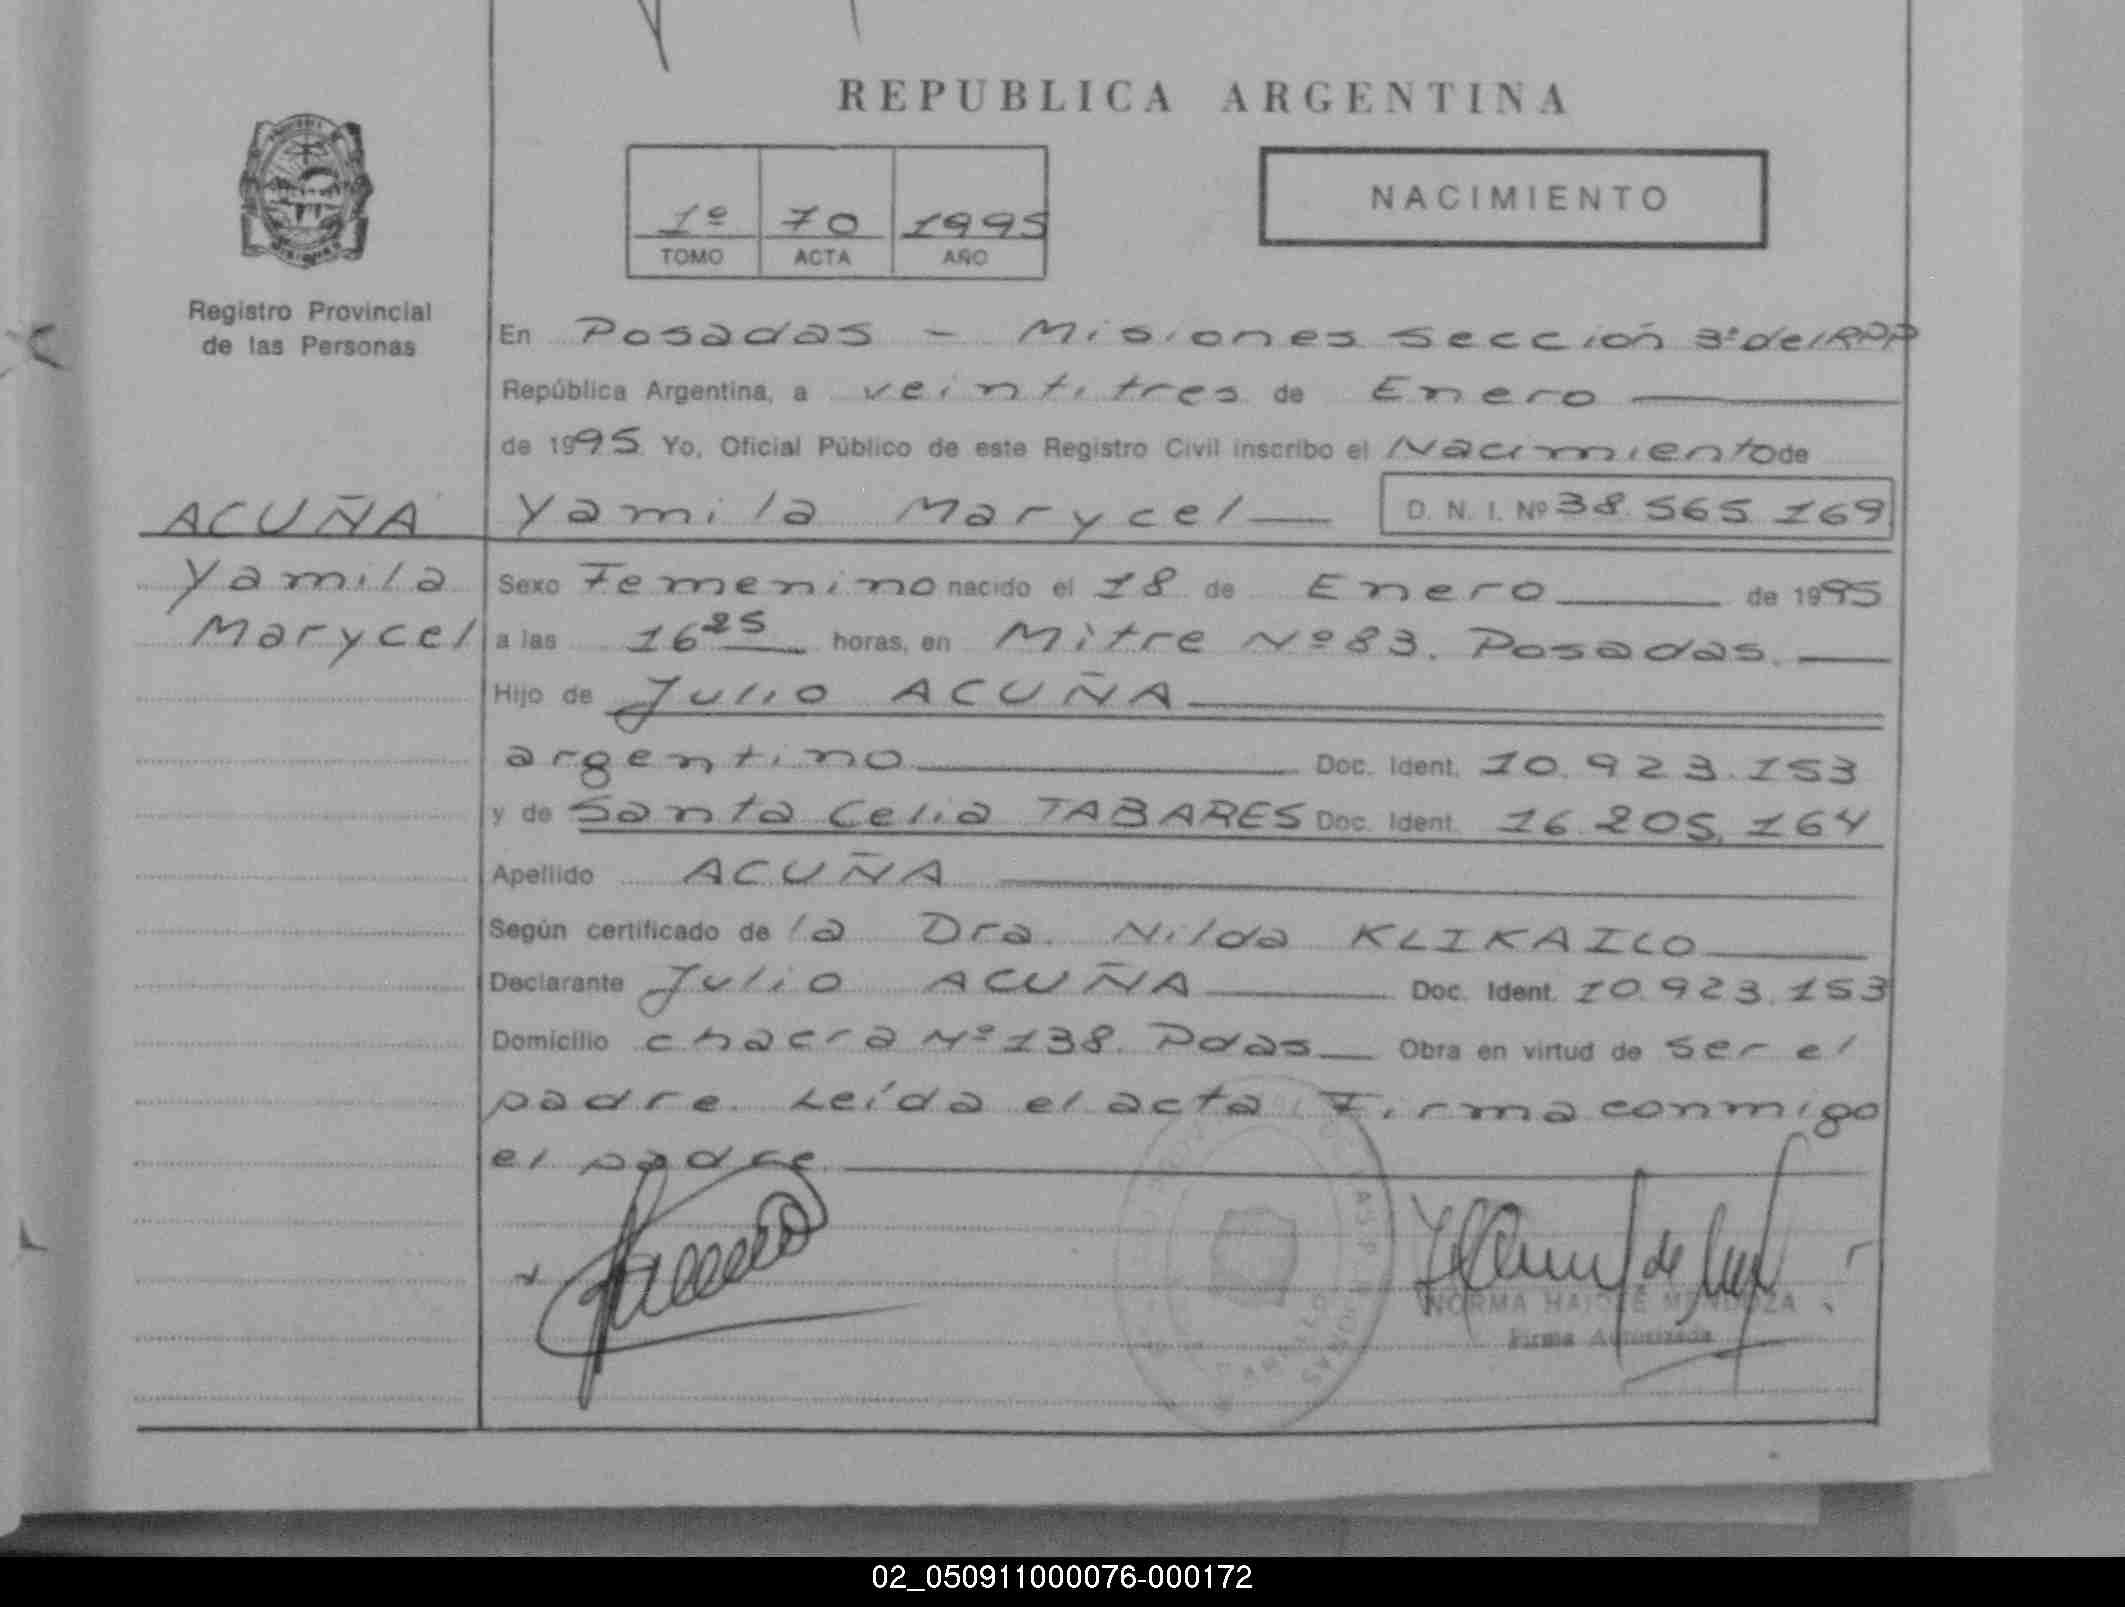 REPUBLICA ARGENTINA
1º 70 1995
TOMO ACTA AÑO
NACIMIENTO
Registro Provincial
de las Personas
En Posadas - Misiones Sección 3ª del RPP
República Argentina, a veintitres de Enero
de 1995 Yo, Oficial Público de este Registro Civil inscribo el Nacimiento de
ACUÑA
Yamila
Marycel
Yamila Marycel D. N. I. Nº 38.565.169
Sexo Femenino nacido el 18 de Enero de 1995
a las 16 25 horas, en Mitre Nº 83. Posadas.
Hijo de Julio ACUÑA
argentino Doc. Ident. 10.923.153
y de Santa Celia TABARES Doc. Ident. 16.205.164
Apellido ACUÑA
Según certificado de la Dra. Nilda KLIKAILO
Declarante Julio ACUÑA Doc. Ident. 10.923.153
Domicilio chacra Nº 138. Pdas Obra en virtud de ser el
padre. Leída el acta Firma conmigo
el padre.
NORMA HAIDEE MENDOZA
Firma Autorizada
02_050911000076-000172